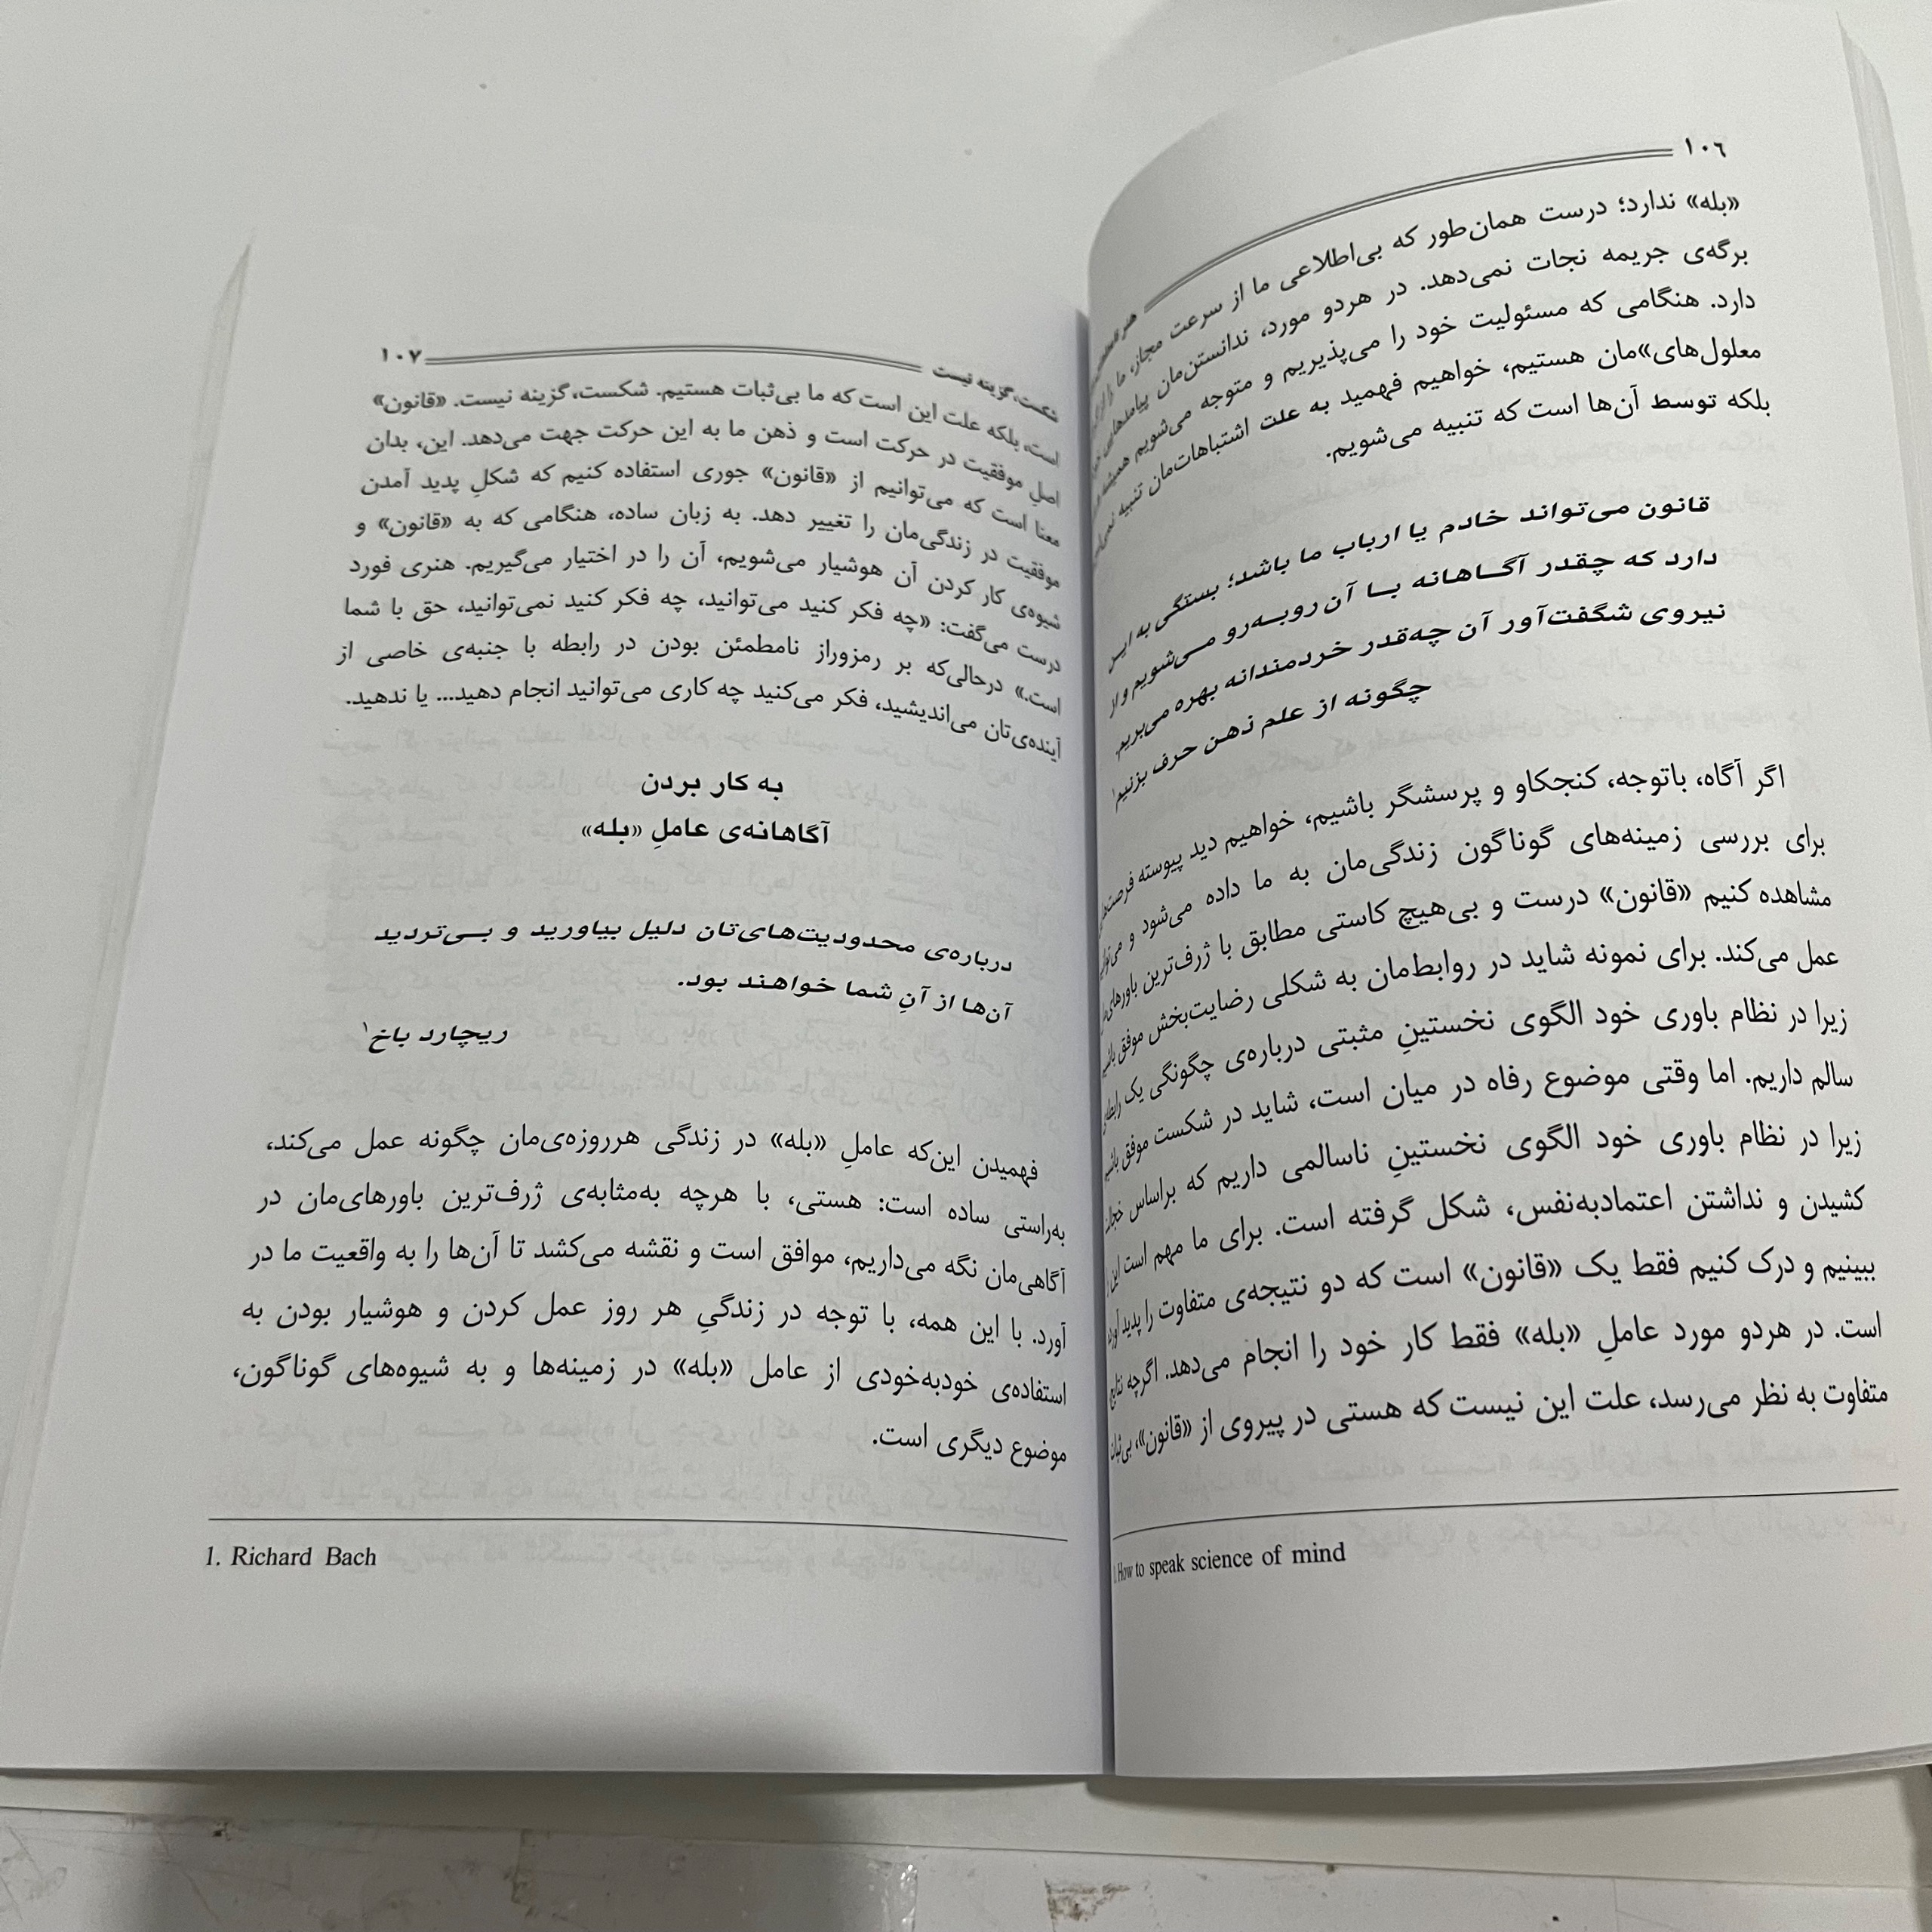 ۱۰۶
«بله» ندارد؛ درست همان‌طور که بی‌اطلاعی ما از سرعت مجاز، ما را از
برگه‌ی جریمه نجات نمی‌دهد. در هردو مورد، ندانستن‌مان پیامدهایی
دارد. هنگامی که مسئولیت خود را می‌پذیریم و متوجه می‌شویم همیشه
معلول‌های»مان هستیم، خواهیم فهمید به علت اشتباهات‌مان تنبیه
بلکه توسط آن‌ها است که تنبیه می‌شویم.
قانون می‌تواند خادم یا ارباب ما باشد؛ بستگی به این
دارد که چقدر آگاهانه با آن روبه‌رو می‌شویم و از
نیروی شگفت‌آور آن چه‌قدر خردمندانه بهره می‌بریم.
چگونه از علم ذهن حرف بزنیم۱
اگر آگاه، باتوجه، کنجکاو و پرسشگر باشیم، خواهیم دید پیوسته
برای بررسی زمینه‌های گوناگون زندگی‌مان به ما داده می‌شود و
مشاهده کنیم «قانون» درست و بی‌هیچ کاستی مطابق با ژرف‌ترین
عمل می‌کند. برای نمونه شاید در روابط‌مان به شکلی رضایت‌بخش موفق
زیرا در نظام باوری خود الگوی نخستینِ مثبتی درباره‌ی چگونگی یک
سالم داریم. اما وقتی موضوع رفاه در میان است، شاید در شکست موفق
زیرا در نظام باوری خود الگوی نخستینِ ناسالمی داریم که براساس
کشیدن و نداشتن اعتمادبه‌نفس، شکل گرفته است. برای ما مهم است
ببینیم و درک کنیم فقط یک «قانون» است که دو نتیجه‌ی متفاوت را پدید
است. در هردو مورد عاملِ «بله» فقط کار خود را انجام می‌دهد. اگرچه
متفاوت به نظر می‌رسد، علت این نیست که هستی در پیروی از «قانون»،
1. How to speak science of mind
شکست، گزینه نیست ۱۰۷
است، بلکه علت این است که ما بی‌ثبات هستیم. شکست، گزینه نیست. «قانون»
اصلِ موفقیت در حرکت است و ذهن ما به این حرکت جهت می‌دهد. این، بدان
معنا است که می‌توانیم از «قانون» جوری استفاده کنیم که شکلِ پدید آمدن
موفقیت در زندگی‌مان را تغییر دهد. به زبان ساده، هنگامی که به «قانون» و
شیوه‌ی کار کردن آن هوشیار می‌شویم، آن را در اختیار می‌گیریم. هنری فورد
درست می‌گفت: «چه فکر کنید می‌توانید، چه فکر کنید نمی‌توانید، حق با شما
است.» درحالی‌که بر رمزوراز نامطمئن بودن در رابطه با جنبه‌ی خاصی از
آینده‌ی‌تان می‌اندیشید، فکر می‌کنید چه کاری می‌توانید انجام دهید... یا ندهید.
به کار بردن
آگاهانه‌ی عاملِ «بله»
درباره‌ی محدودیت‌های‌تان دلیل بیاورید و بی‌تردید
آن‌ها از آنِ شما خواهند بود.
ریچارد باخ۱
فهمیدن این‌که عاملِ «بله» در زندگی هرروزه‌ی‌مان چگونه عمل می‌کند،
به‌راستی ساده است: هستی، با هرچه به‌مثابه‌ی ژرف‌ترین باورهای‌مان در
آگاهی‌مان نگه می‌داریم، موافق است و نقشه می‌کشد تا آن‌ها را به واقعیت ما در
آورد. با این همه، با توجه در زندگیِ هر روز عمل کردن و هوشیار بودن به
استفاده‌ی خودبه‌خودی از عامل «بله» در زمینه‌ها و به شیوه‌های گوناگون،
موضوع دیگری است.
1. Richard Bach